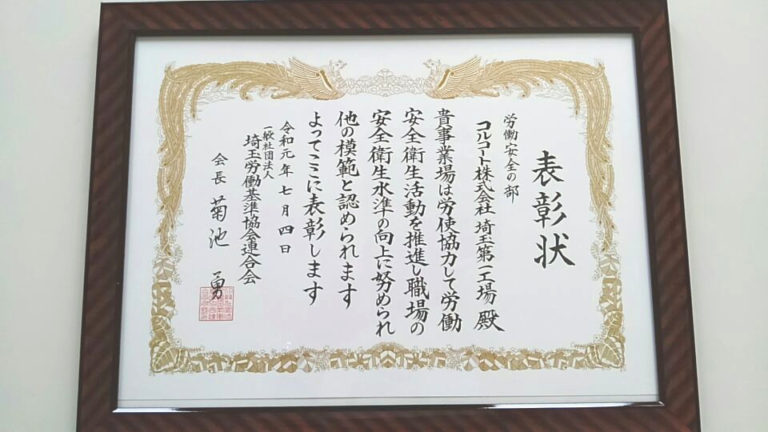 表彰状
労働安全の部
コルコート株式会社 埼玉第二工場 殿
貴事業場は労使協力して労働
安全衛生活動を推進し職場の
安全衛生水準の向上に努められ
他の模範と認められます
よってここに表彰します
令和元年七月四日
一般社団法人
埼玉労働基準協会連合会
会長 菊池 勇